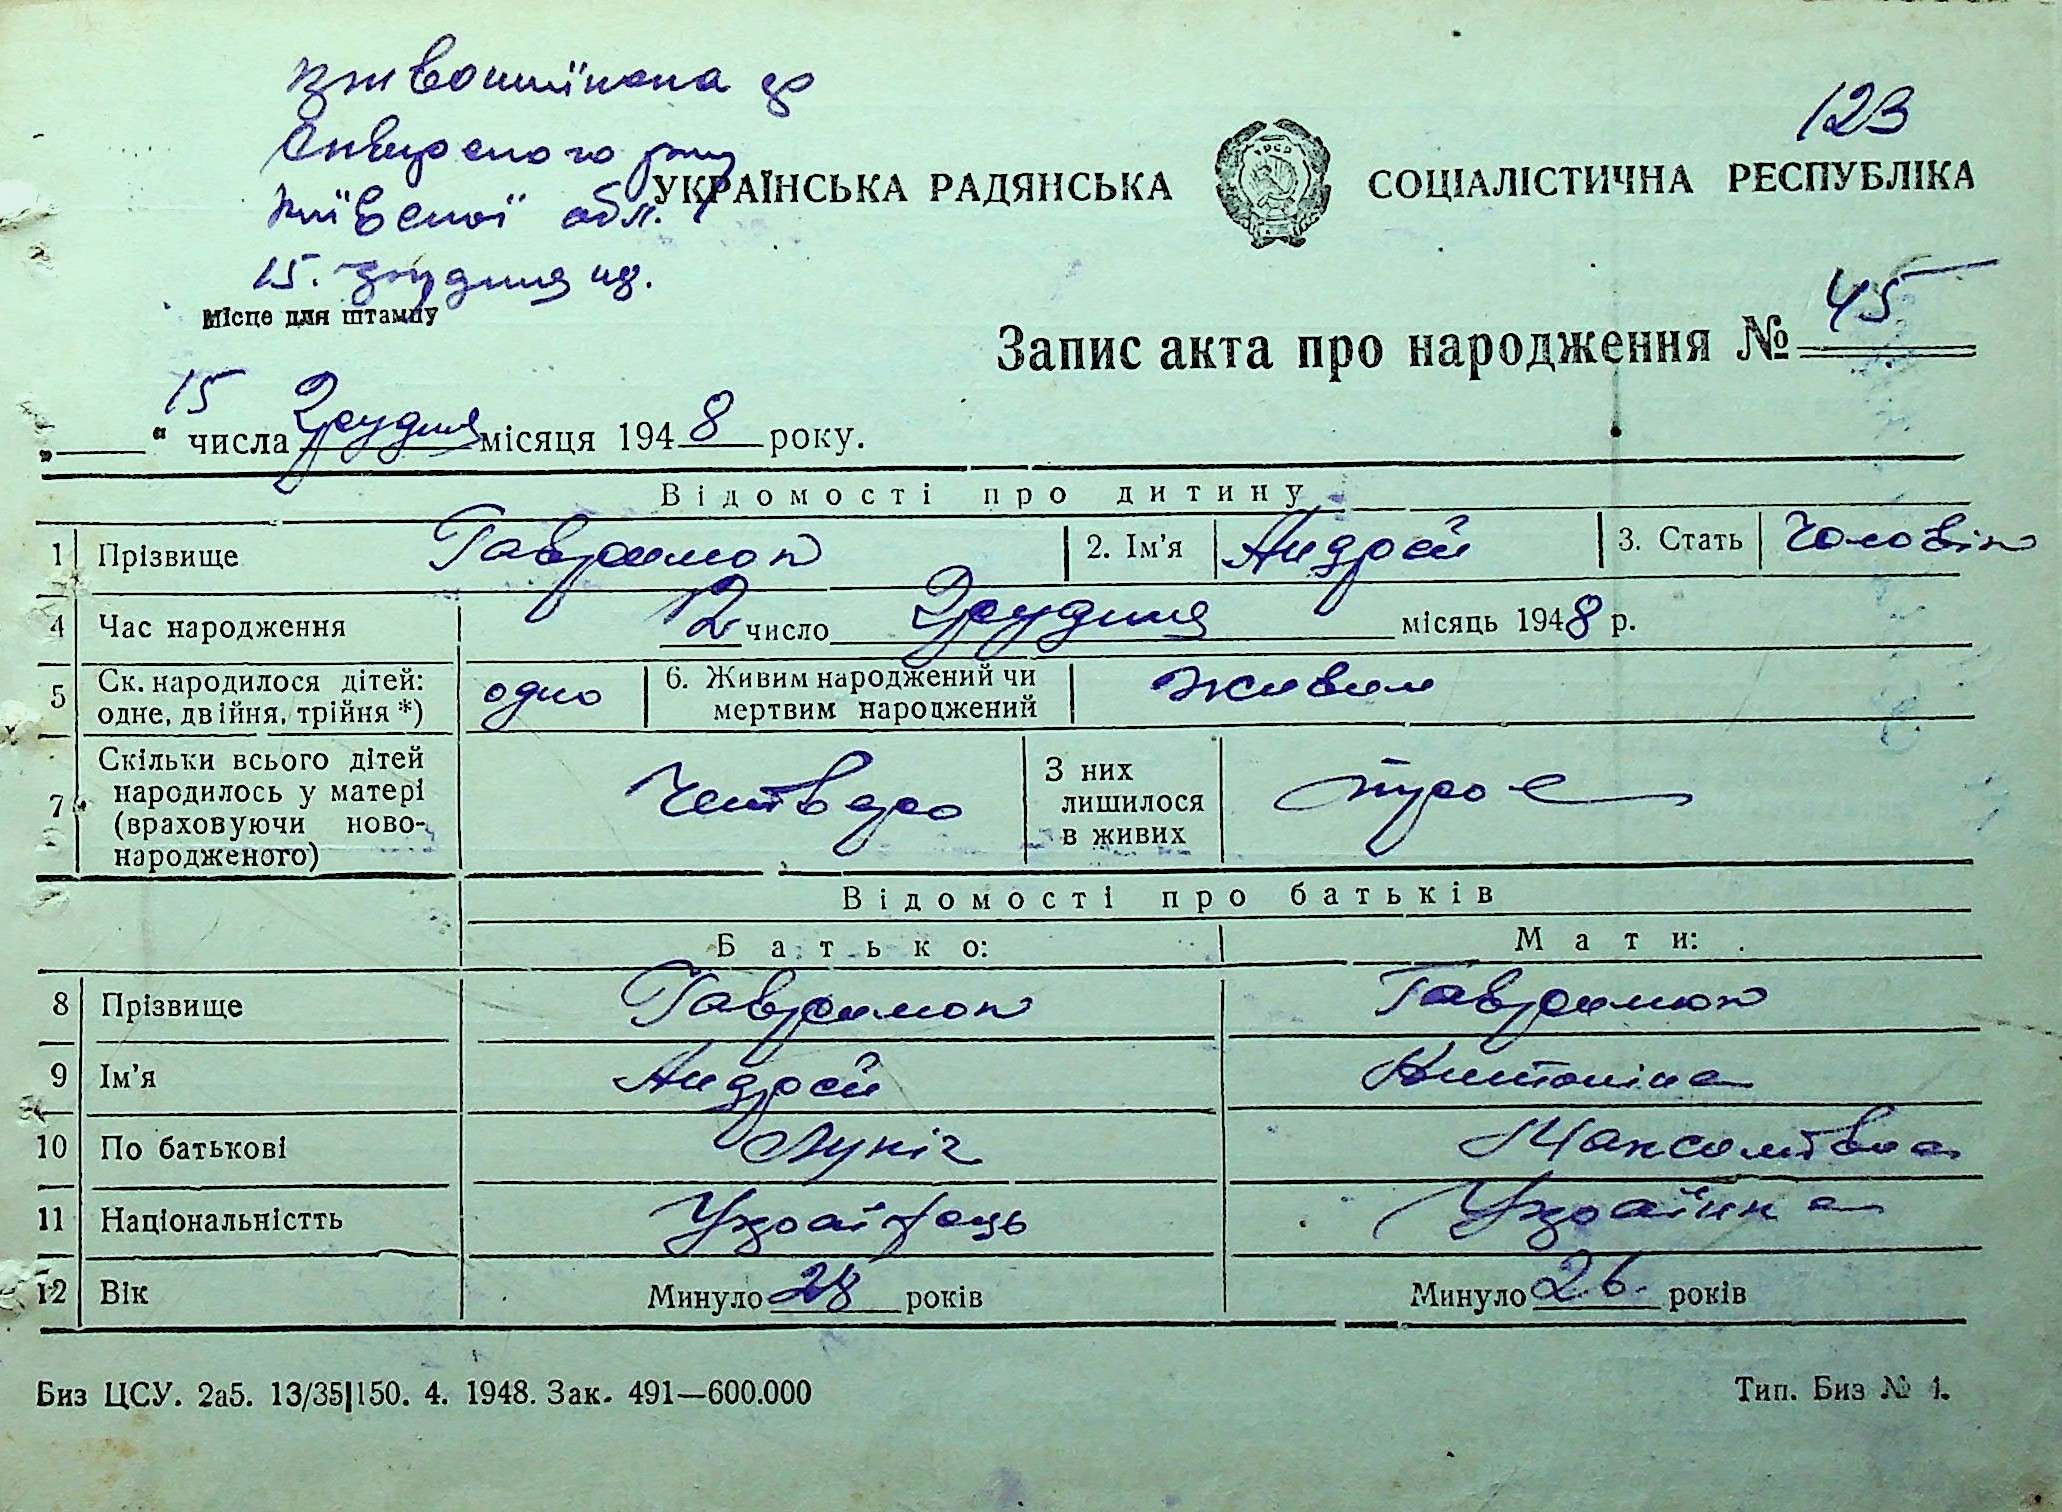 123
Сквирского р-ну
Київскої обл.
15. грудня
УКРАЇНСЬКА РАДЯНСЬКА СОЦІАЛІСТИЧНА РЕСПУБЛІКА
Місце для штампу
Запис акта про народження № 45
„15“ числа Грудня місяця 1948 року.
Відомості про дитину
1 Прізвище Гаврилюк 2. Ім'я Андрей 3. Стать Чоловік
4 Час народження 12 число Грудня місяць 1948 р.
5 Ск. народилося дітей: одно 6. Живим народжений чи живим
одне, двійня, трійня *) мертвим народжений
7 Скільки всього дітей Четверо З них троє
народилось у матері лишилося
(враховуючи ново- в живих
народженого)
Відомості про батьків
Батько: Мати:
8 Прізвище Гаврилюк Гаврилюк
9 Ім'я Андрей Антоніна
10 По батькові Лукіч Максимівна
11 Національністть Українець Українка
12 Вік Минуло 28 років Минуло 26. років
Биз ЦСУ. 2а5. 13/35|150. 4. 1948. Зак. 491—600.000 Тип. Биз № 1.